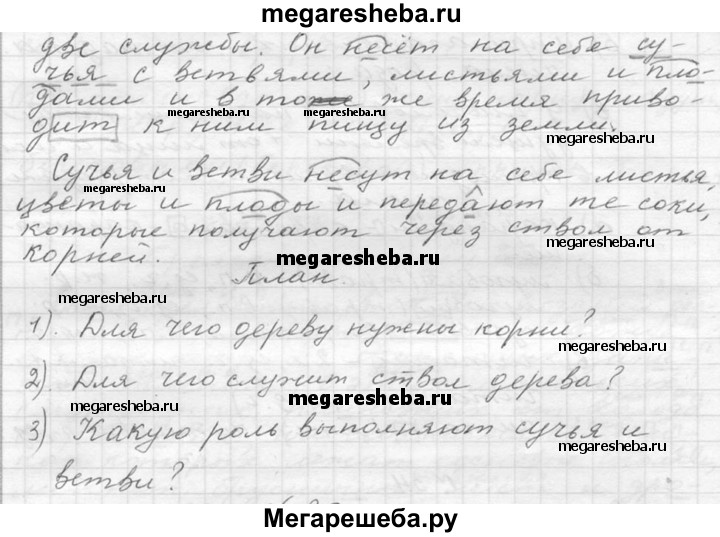 megaresheba.ru
две службы. Он несёт на себе су-
чья с ветвями, листьями и пло-
дами и в то же время приво-
megaresheba.ru megaresheba.ru megaresheba.ru
дит к ним пищу из земли.
Сучья и ветви несут на себе листья,
megaresheba.ru
цветы и плоды и передают те соки,
которые получают через ствол от
megaresheba.ru
корней.
megaresheba.ru
План.
megaresheba.ru
1). Для чего дереву нужны корни?
megaresheba.ru
2). Для чего служит ствол дерева?
megaresheba.ru megaresheba.ru
3) Какую роль выполняют сучья и
megaresheba.ru
ветви?
Мегарешеба.ру